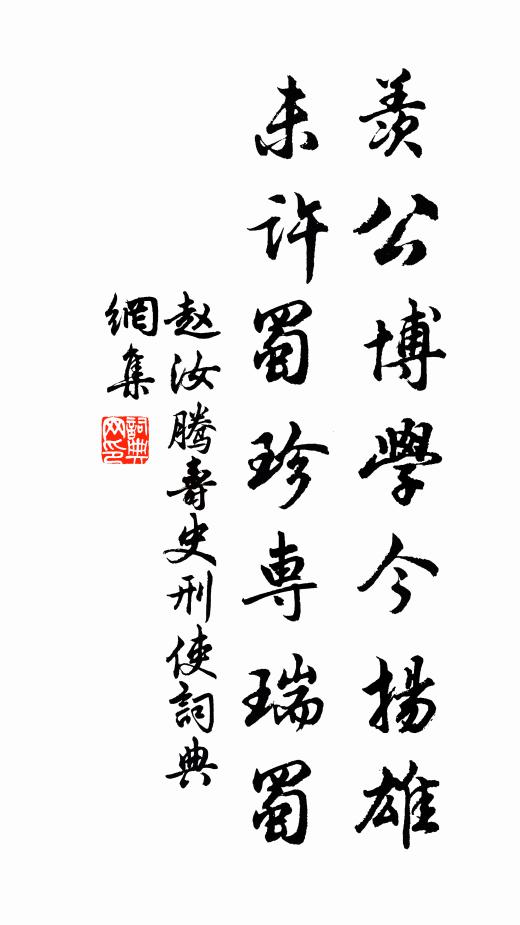 羨公博學今揚雄
未許蜀珍専瑞蜀
赵汝腾壽史刑使詞典
網集
詞典網印